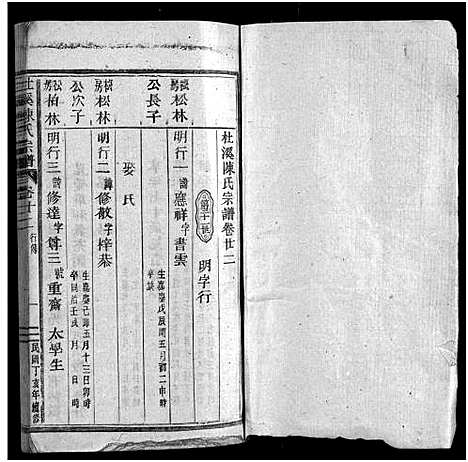 杜溪陳氏宗譜卷廿二
明字行
松林
公長子
明行一 諱應祥字書雲
生嘉慶戊辰閏五月初二申時
卒缺
娶氏
松林
公次子
明行二 諱修敬字梓恭
生嘉慶己巳五月十三日卯時
卒同治壬戌 月 日 時
柏林
明行三 諱修達字尊三號重齋 太學生
杜溪陳氏宗譜
卷廿二
行傳
一
民國丁亥年續修